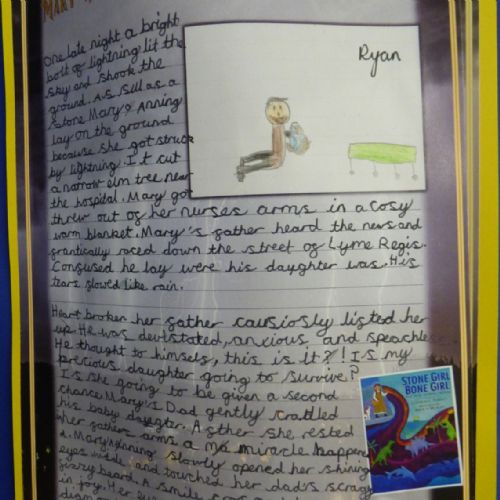 MARY
Ryan
One late night a bright
bolt of lightning lit the
sky and shook the
ground. As still as a
stone Mary Anning
lay on the ground
because she got struck
by lightning. It cut
a narrow elm tree near
the hospital. Mary got
threw out of her nurses arms in a cosy
warm blanket. Mary's gather heard the news and
grantically raced down the street of Lyme Regis.
Confused he lay were his daughter was. His
tears flowed like rain.
Heart broken her gather causiosly listed her
up. He was devistated, anxious and speachless
He thought to himself, this is it?! Is my
precious daughter going to survive?
Is she going to be given a second
chance. Mary's Dad gently cradled
his baby daugter. As ther she rested
her gathers arms a miracle happene
Mary Anning slowly opened her shining
eyes and touched her dad's scragg
gizzy beard. A smile
in joy. Her
STONE GIRL
BONE GIRL